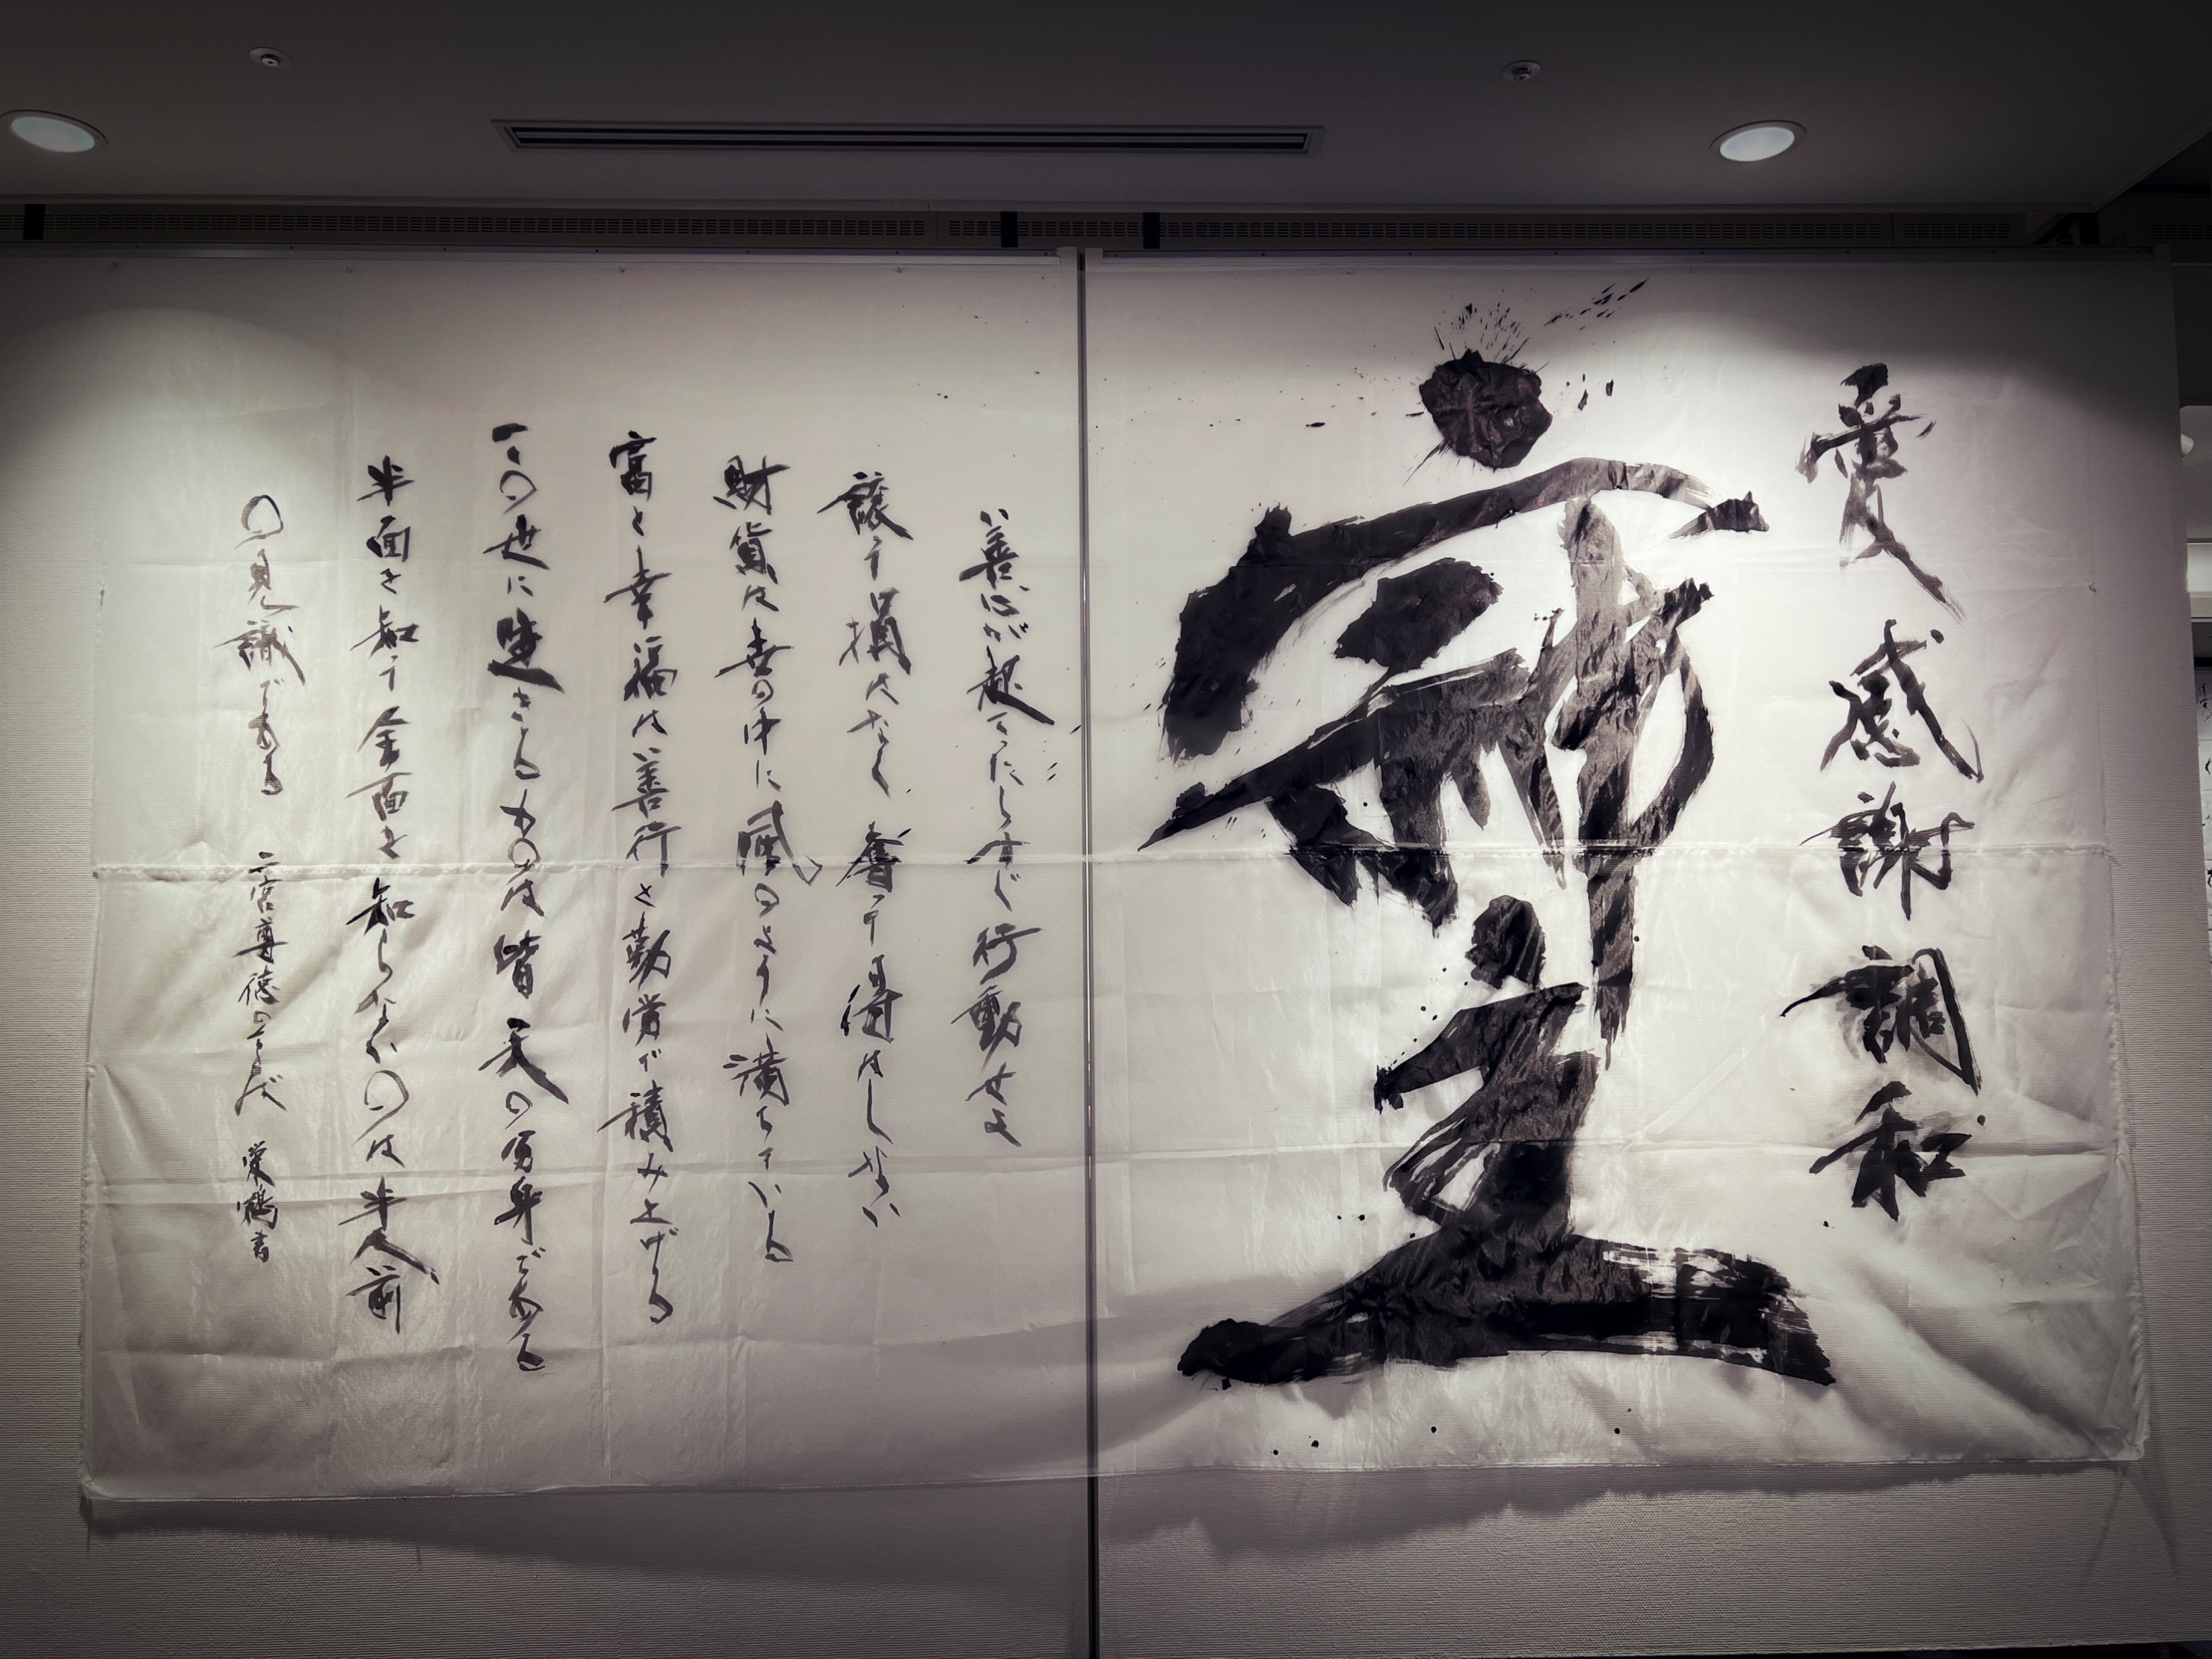 愛 感謝 調和
善心が起こったらすぐ行動せよ
譲って損はなく 奪って得はしない
財貨は世の中に風のように満ちている
富と幸福は善行と勤労で積み上げる
この世に生きるものは皆 天の分身である
半面を知って全面を知らないのは半人前
の見識である 二宮尊徳の言葉 栄鶴書